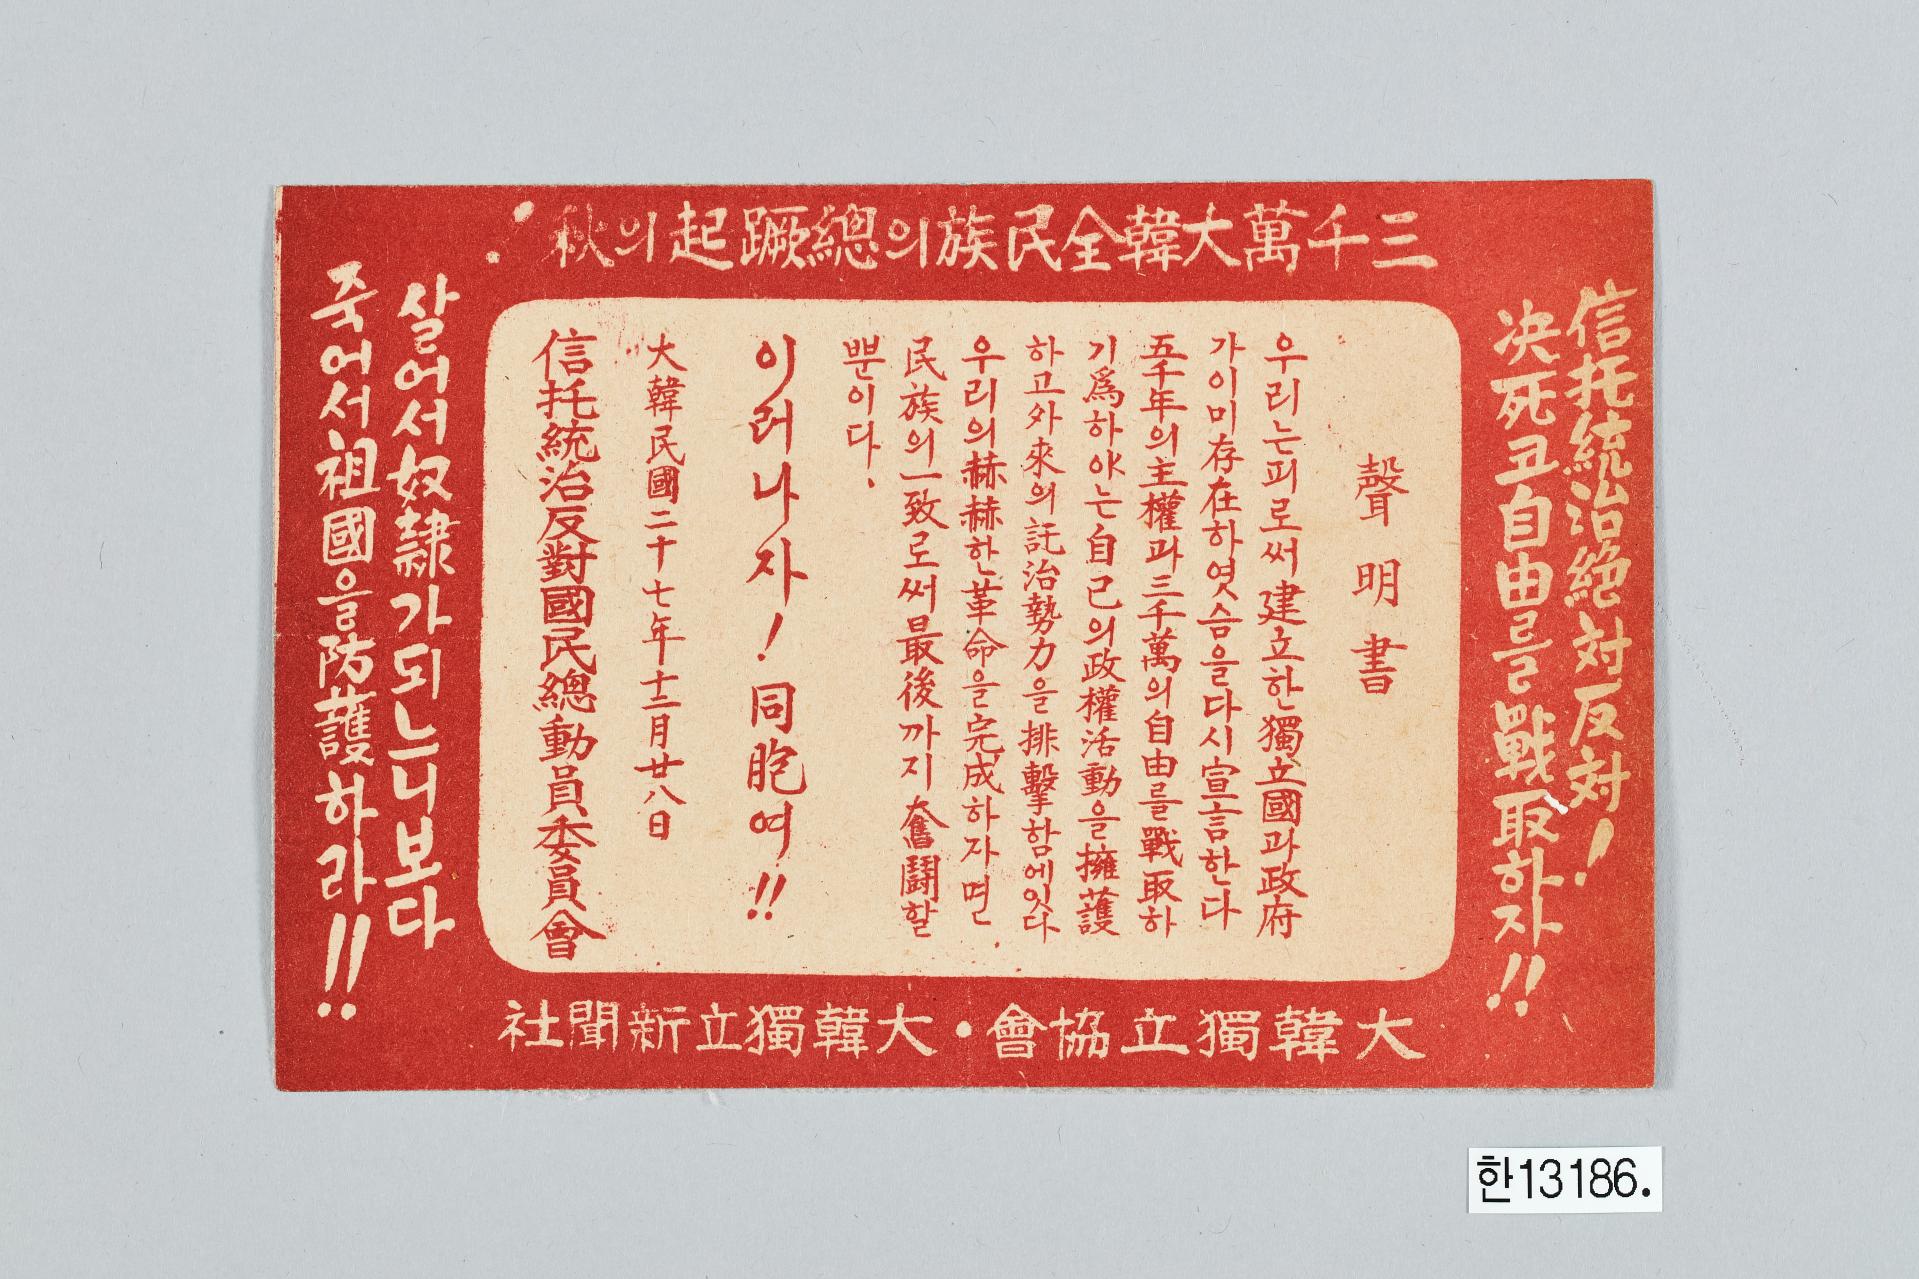 三千萬大韓全民族의總蹶起의秋!
信托統治絶対反対!
決死코自由를戰取하자!!
聲明書
우리는피로써建立한獨立國과政府
가이미存在하엿슴을다시宣言한다
五千年의主權과三千萬의自由를戰取하
기爲하야는自己의政權活動을擁護
하고外來의託治勢力을排擊함에잇다
우리의赫赫한革命을完成하자면
民族의一致로써最後까지奮鬪할
뿐이다.
이러나자! 同胞여!!
大韓民國二十七年十二月廿八日
信托統治反對國民總動員委員會
살어서奴隷가되느니보다
죽어서祖國을防護하라!!
大韓獨立協會·大韓獨立新聞社
한13186.